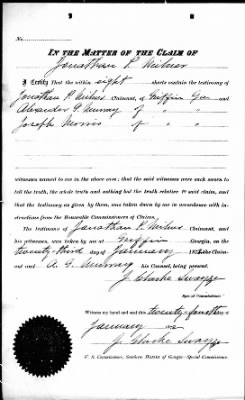 No.
IN THE MATTER OF THE CLAIM OF
Jonathan P. Milner
I Certify That the within eight sheets contain the testimony of
Jonathan P. Milner Claimant, of Griffin Ga and
Alexander G. Murray of " "
Joseph Morris of " "
witnesses named to me in the above case; that the said witnesses were each sworn to
tell the truth, the whole truth and nothing but the truth relative to said claim, and
that the testimony as given by them, was taken down by me in accordance with in-
structions from the Honorable Commissioners of Claims.
The testimony of Jonathan P. Milner Claimant, and
his witnesses, was taken by me at Griffin Georgia, on the
twenty-third day of January the Claim-
ant and A. G. Murray his Counsel, being present.
J. Clarke Swayze
Special Commissioner.
Witness my hand and seal this twenty-fourth
January
J. Clarke Swayze
U. S. Commissioner, Northern District of Georgia—Special Commissioner.